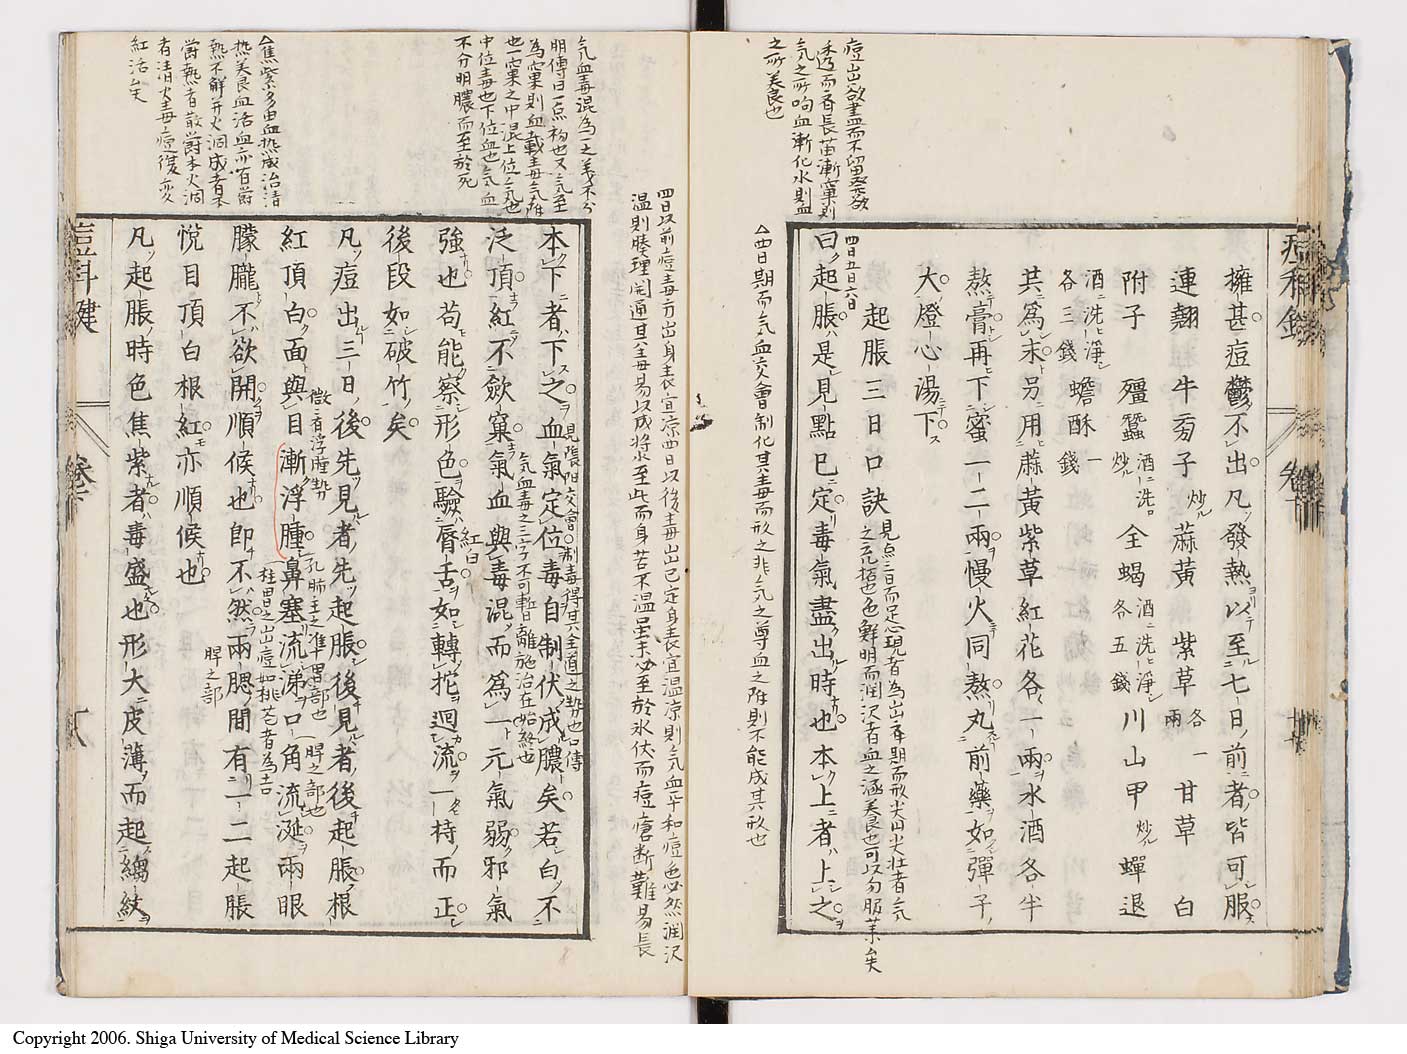 痘出欲盡而不留發欲
透而香長苗漸窠則
氣之所呴血漸化水則血
之所美良也
擁甚痘鬱不出凡發熱以至七日前者皆可服
連翹 牛蒡子炒 蔴黄 紫草各一兩 甘草 白
附子 殭蠶酒洗炒 全蝎酒洗淨各五錢 川山甲炒 蟬退
酒洗淨各三錢 蟾酥一錢
共為末另用蔴黄紫草紅花各一兩水酒各半
熬膏再下蜜一二兩慢火同熬丸前藥如彈子
大燈心湯下
四日五日六日
起脹三日口訣
見点三日而足現者為出齊期而形尖而尖壮者氣
之充拓也色鮮明而潤沢者血之涵美良也可以勿服薬矣
曰起脹是見點已定毒氣盡出時也本上者上之
△四日期而氣血交會制化其毒而形之非氣之尊血之附則不能成其形也
四日以前痘毒方出身表宜涼四日以後毒出已定身表宜温涼則氣血平和痘色必然潤沢
温則腠理開通其毒易以成漿至此而身苦不温虽未必至於氷伏而痘瘡断難易長
氣血毒混為一之義不分
明傳曰一点初也又氣至
為窠則血載毒氣附
也一窠之中混上位氣也
中位毒也下位血也氣血
不分明膿而至於死
△焦紫多由血热成治清
热美良血活血亦百前
熱不解并火洞成者不
爵熱者散爵本火洞
者清火毒痘復亦
紅活矣
本下者下之血氣定位毒自制伏成膿矣若白不
見陰陽交會制毒得其全道之勢也口傳
氣血毒之三字不可暫離施治在始終也
泛頂紅不歛窠氣血與毒混而為一元氣弱邪氣
強也苟能察形色驗唇舌如轉挖迴流一持而正
紅白
後段如破竹矣
凡痘出三日後先見者先起脹後見者後起脹根
徴者浮腫勢
紅頂白面與目漸浮腫鼻塞流涕口角流涎兩眼
孔肺主之準胃之部也
脾之部也
朦朧不欲開順候也即不然兩腮間有一二起脹
脾之部
悅目頂白根紅亦順候也
凡起脹時色焦紫者毒盛也形大皮薄而起縐紋
痘科鍵
卷下